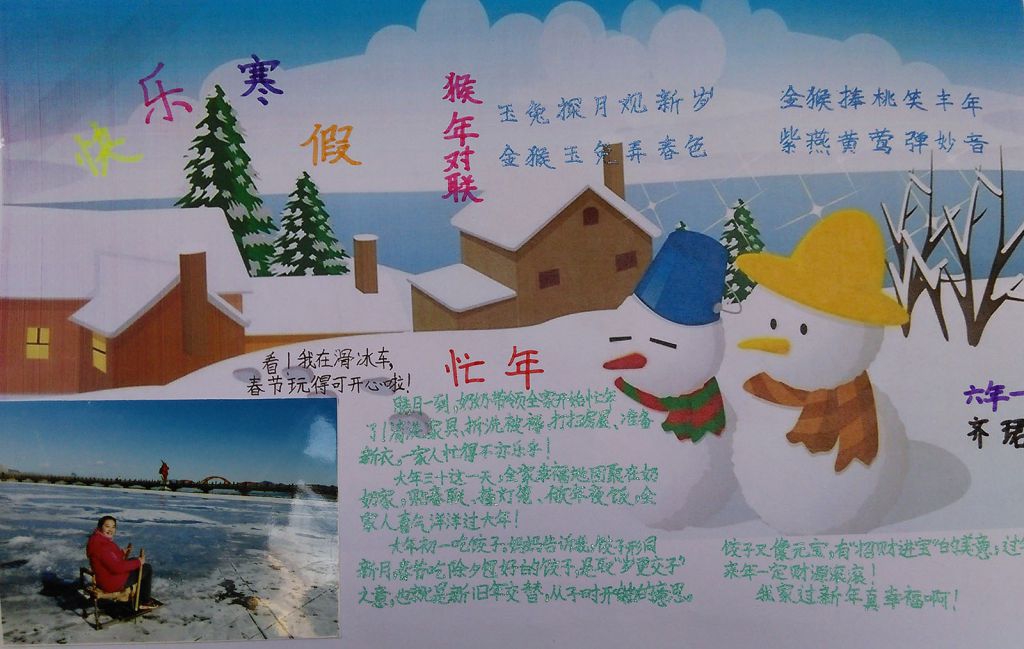 快乐寒假
猴年对联
玉兔探月观新岁
金猴玉兔弄春色
金猴捧桃笑丰年
紫燕黄莺弹妙音
看！我在滑冰车，
春节玩得可开心啦！
忙年
腊月一到，奶奶带领全家开始忙年
了！清洗家具、拆洗被褥、打扫房屋、准备
新衣，一家人忙得不亦乐乎！
大年三十这一天，全家幸福地团聚在奶
奶家，贴春联、挂灯笼、做年夜饭，全
家人喜气洋洋过大年！
大年初一吃饺子，妈妈告诉我，饺子形同
新月，春节吃除夕包好的饺子，是取“岁更交子”
之意，也就是新旧年交替，从子时开始的意思。
饺子又像元宝，有“招财进宝”的美意，过
来年一定财源滚滚！
我家过新年真幸福啊！
六年一
齐珺